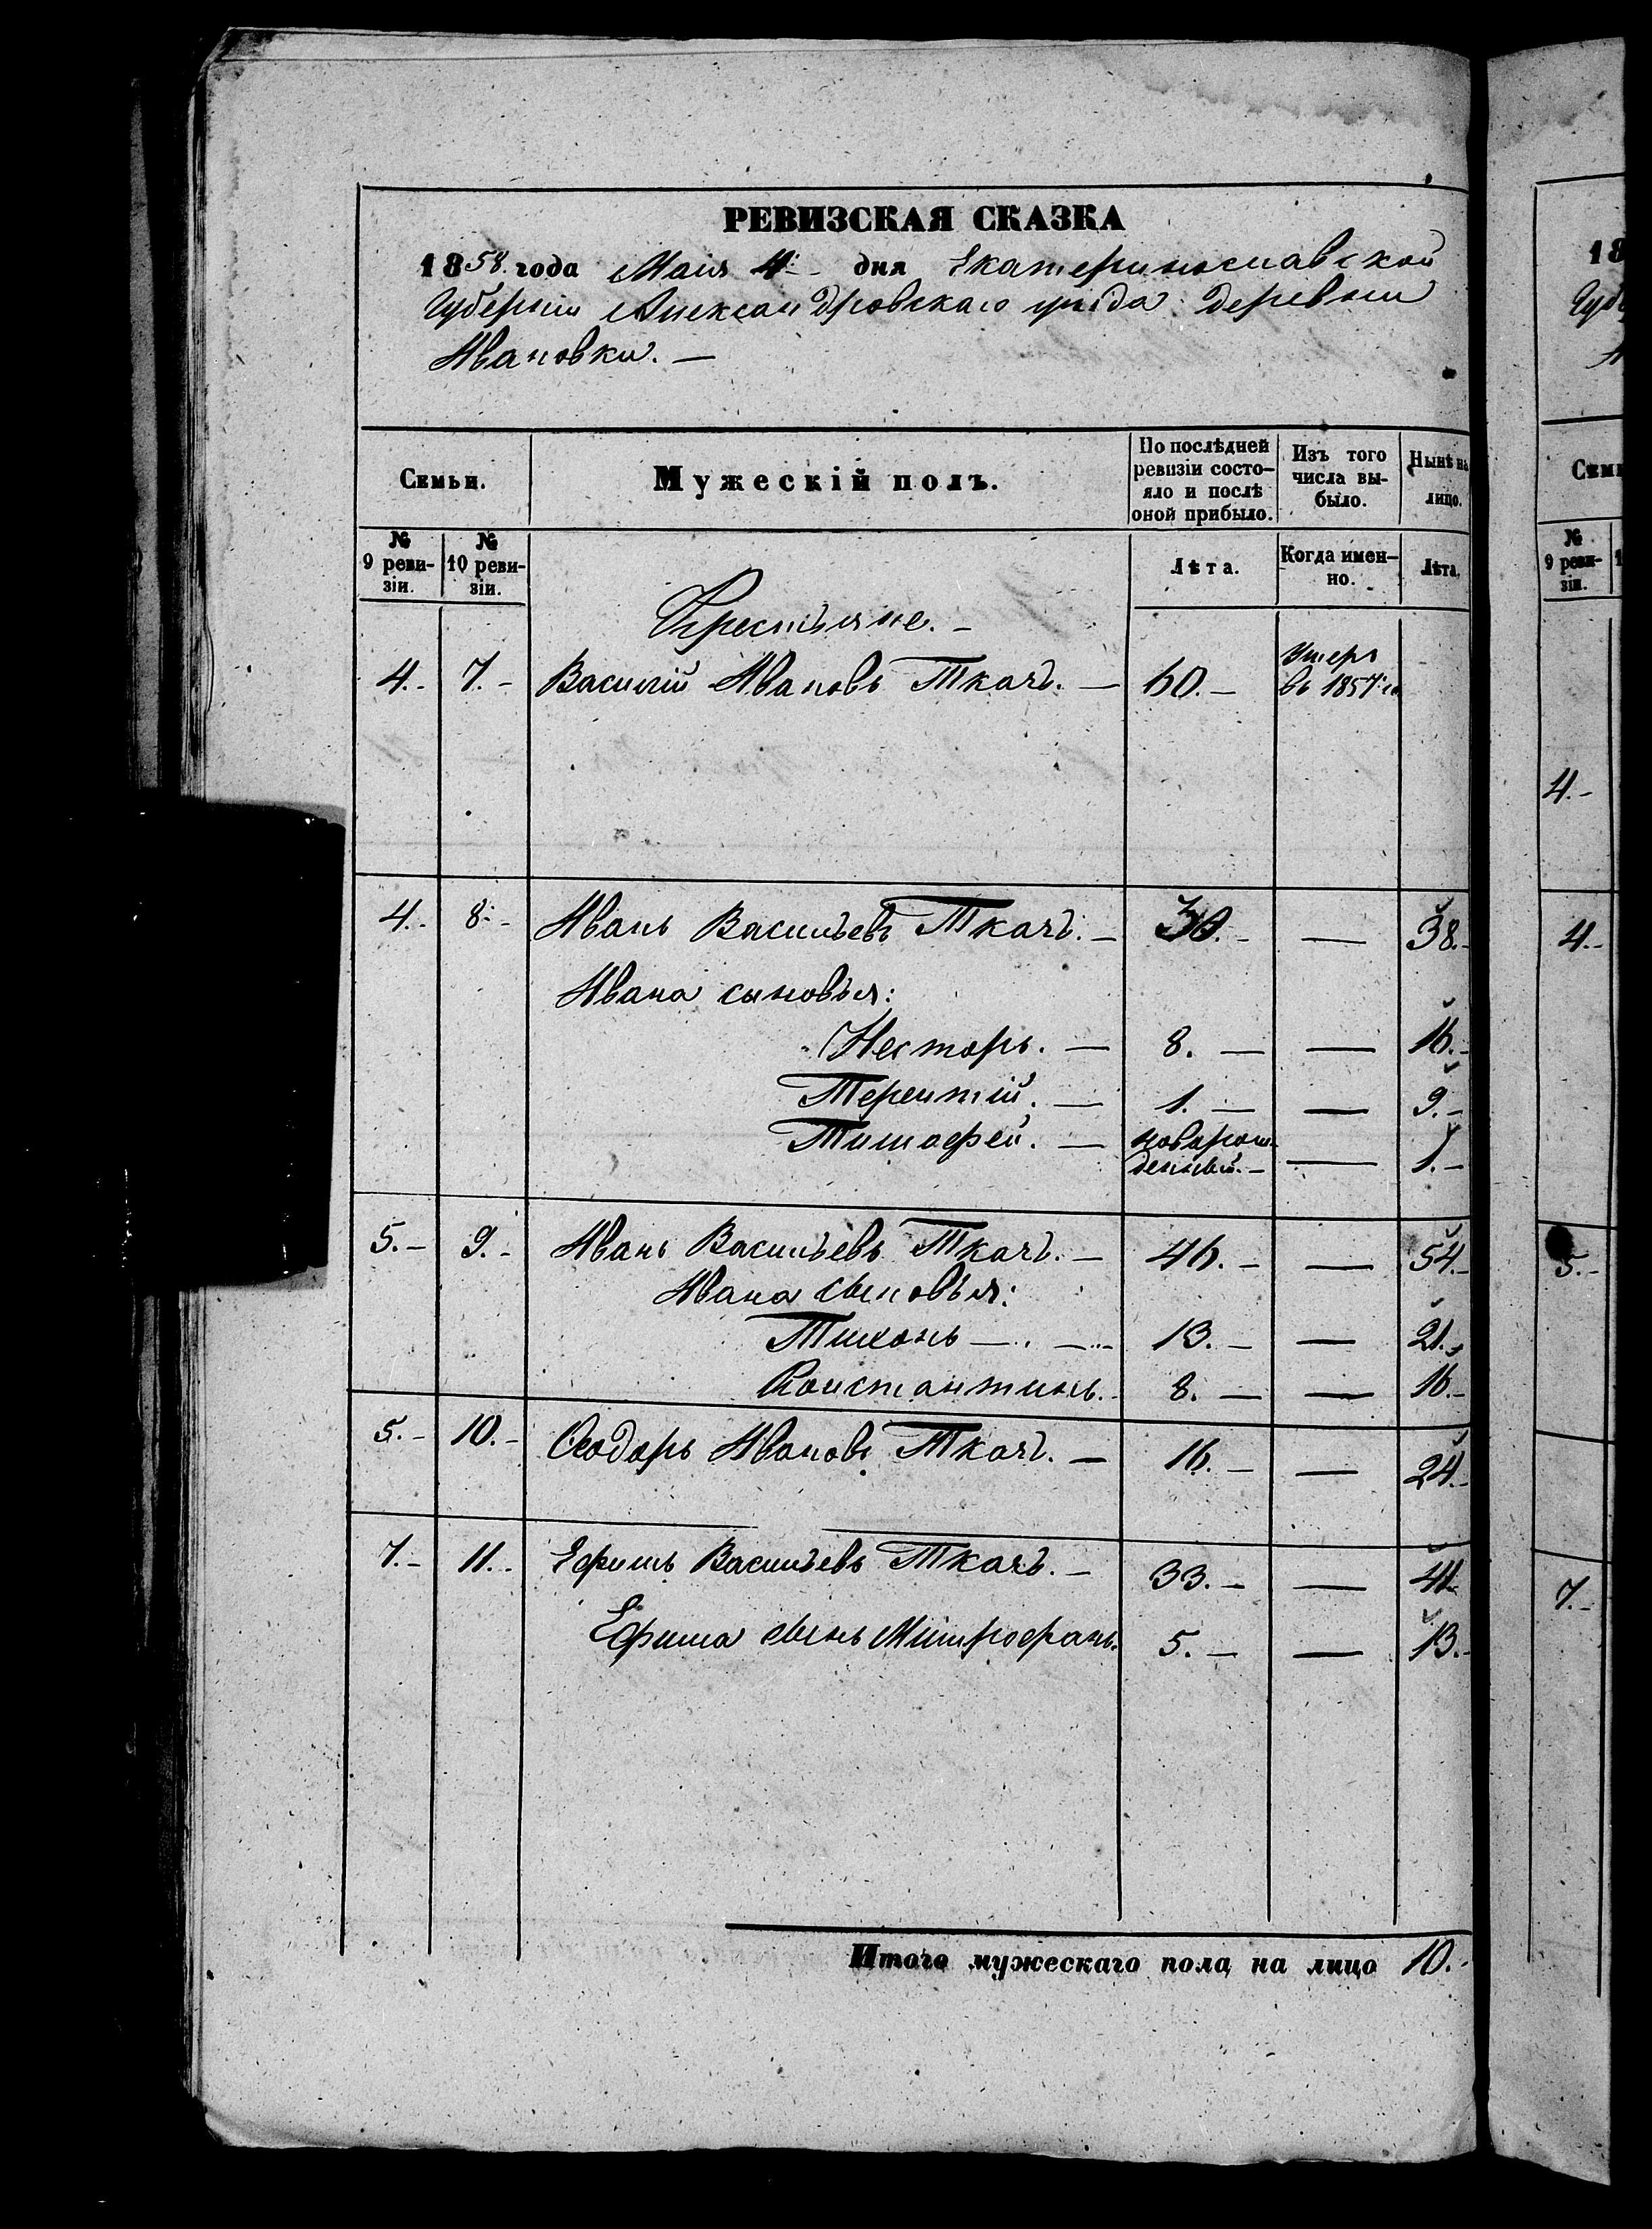 РЕВИЗСКАЯ СКАЗКА
1858. года Маія 4. дня Екатеринославской
Губерніи Александровскаго уѣзда: деревни
Ивановки. —
Семьи. Мужескій полъ. По послѣдней ревизіи состо-яло и послѣ оной прибыло. Изъ того числа вы-было. Нынѣ на лицо.
№ 9 реви-зіи. № 10 реви-зіи. Лѣта. Когда имен-но. Лѣта.
Крестьяне. —
4. — 7. — Василій Ивановъ Ткачъ. — 60. — Умеръ въ 1857: го
4. — 8. — Иванъ Васильевъ Ткачъ. — 30. — — 38. —
Ивана сыновья:
Несторъ. — 8. — — 16. —
Терентій. — 1. — — 9. —
Тимофей. — новорож-
денный. — — 1. —
5. — 9. — Иванъ Васильевъ Ткачъ. — 46. — — 54. —
Ивана сыновья:
Тихонъ — . — 13. — — 21. —
Константинъ. — 8. — — 16. —
5. — 10. — Ѳеодоръ Ивановъ Ткачъ. — 16. — — 24. —
7. — 11. — Ефимъ Васильевъ Ткачъ. — 33. — — 41.
Ефима сынъ Митрофанъ. 5. — — 13. —
Итого мужескаго пола на лицо 10. —
18
Семь
№ 9 реви-зіи. 1
4. —
4. —
5. —
7. —